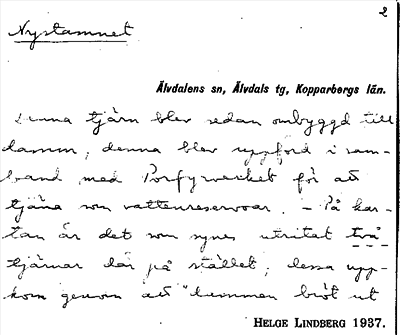 2
Nystamnet
Älvdalens sn, Älvdals tg, Kopparbergs län.
Denna tjärn blev sedan ombyggd till
damm, denna blev uppförd i sam-
band med Porfyrverket för att
tjäna som vattenreservoar. – På kar-
tan är det som synes utritat två
tjärnar där på stället; dessa upp-
kom genom att "kammen bröt ut
HELGE LINDBERG 1937.